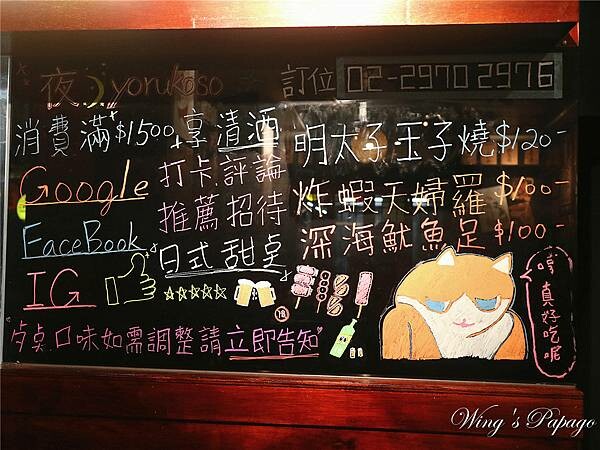 夜 yorukoso
訂位 02-2970 2976
消費滿$1500享清酒
Google
FaceBook
IG
打卡.評論
推薦招待
日式甜桌
明太子玉子燒$120-
炸蝦天婦羅$100-
深海魷魚足$100-
口味如需調整請立即告知
真好吃呢
Wing's Papago